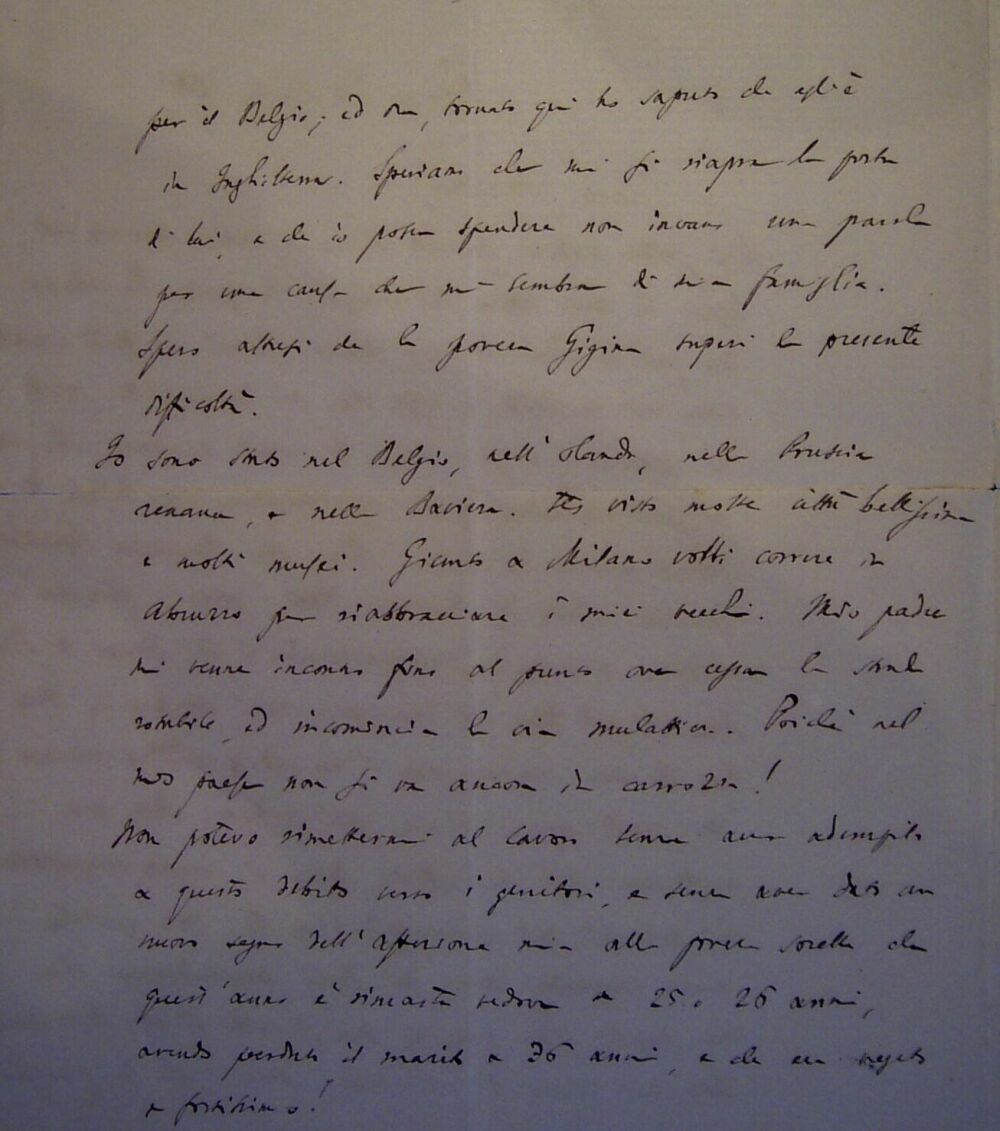 per il Belgio; ed ora, tornato qui ho saputo che egli è
in Inghilterra. Speriamo che mi si riapra la porta
di lui, e che io possa spendere non invano una parola
per una causa che mi sembra di sua famiglia.
Spero altresì che la povera Gigina superi la presente
difficoltà.
Io sono stato nel Belgio, nell'Olanda, nella Prussia
renana, e nella Baviera. Ho visto molte città bellissime
e molti musei. Giunto a Milano volli correre in
Abruzzo per riabbracciare i miei vecchi. Mio padre
mi venne incontro fino al punto ove cessa la strada
rotabile, ed incomincia la via mulattiera. Poichè nel
mio paese non si va ancora in carrozza!
Non potevo rimettermi al lavoro senza aver adempito
a questo debito verso i genitori, e senza aver dato un
nuovo segno dell'affezione mia alla povera sorella che
quest'anno è rimasta vedova a 25 o 26 anni,
avendo perduto il marito a 36 anni, e che era
e fortissimo!